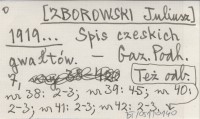 [ZBOROWSKI Juliusz]
1919... Spis czeskich
gwałtów. — Gaz. Podh.
7, Też odb.
nr 38: 2-3; nr 39: 45; nr 40:
2-3; nr 41: 2-3; nr 42: 2-3.